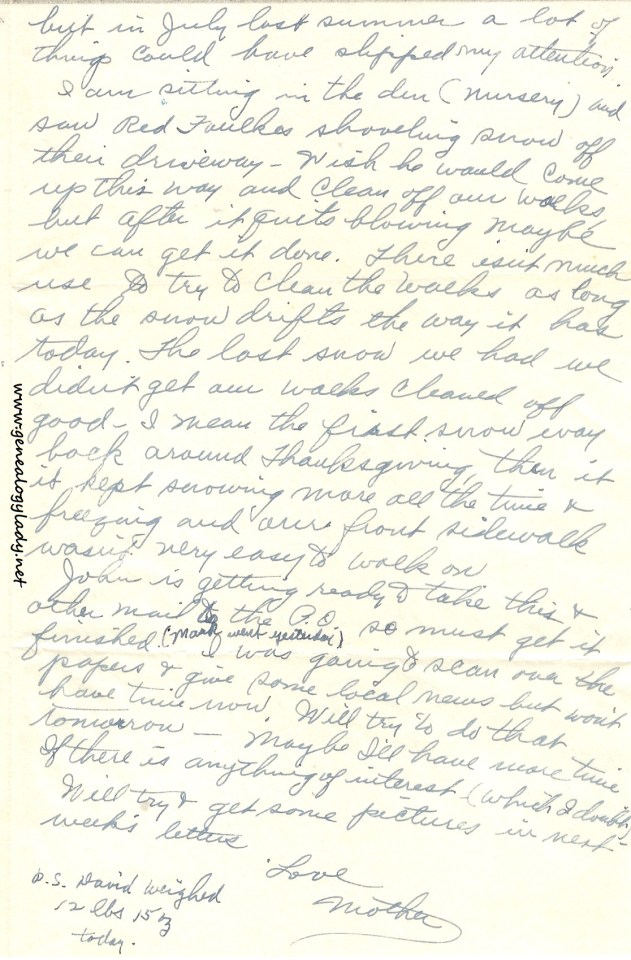 but in July last summer a lot of
things could have slipped my attention
I am sitting in the den (nursery) and
saw Red Faulkes shoveling snow off
their driveway - Wish he would come
up this way and clean off our walks,
but after it quits blowing maybe
we can get it done. There isn't much
use to try to clean the walks as long
as the snow drifts the way it has
today. The last snow we had we
didn't get our walks cleaned off
good - I mean the first snow way
back around Thanksgiving, then it
it kept snowing more all the time &
freezing and our front sidewalk
wasn't very easy to walk on
John is getting ready to take this &
other mail to the P.O. so must get it
finished. (Mark went yesterday) I was going to scan over the
papers & give some local news but won't
have time now. Will try to do that
tomorrow - Maybe I'll have more time
If there is anything of interest (which I doubt)
Will try & get some pictures in next
week's letters
Love
Mother
P.S. David weighed
12 lbs 15 oz
today.
www.genealogylady.net